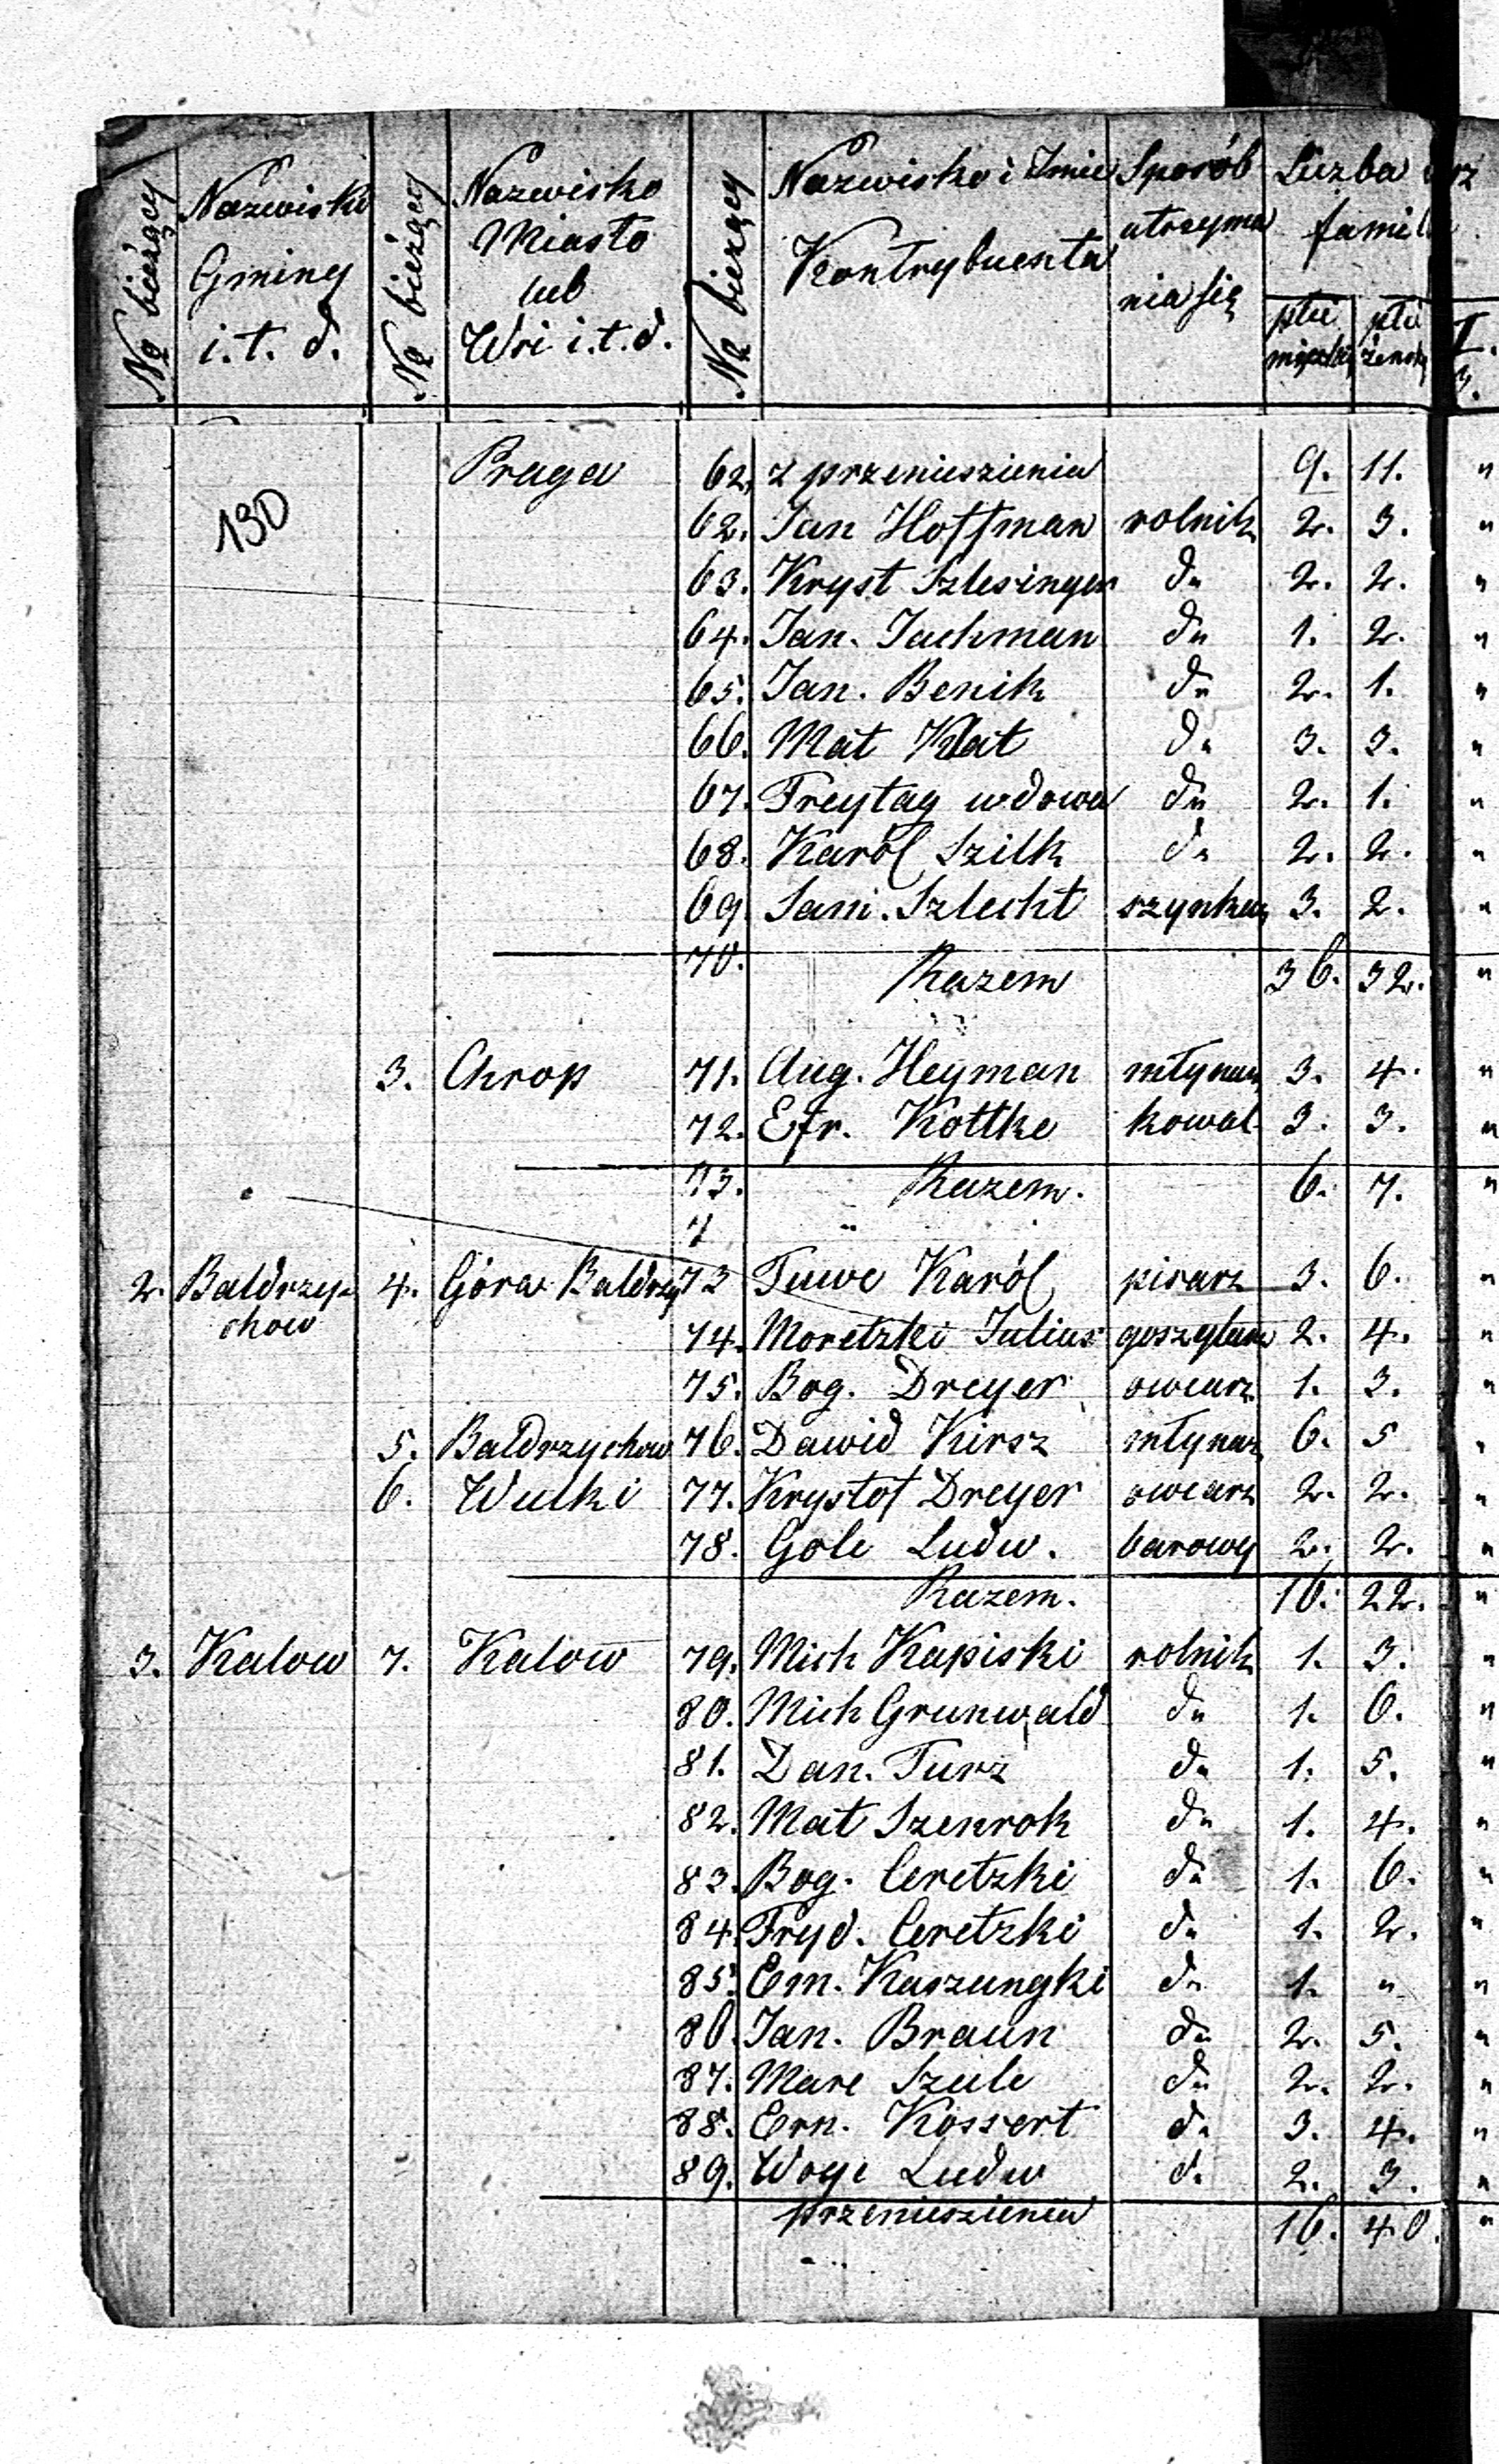 No bieżący Nazwisko Gminy i.t.d. No bieżący Nazwisko Miasta lub Wsi i.t.d. No bieżący Nazwisko i Imie Kontrybuenta Sposób utrzymania się Liczba familii płci męzki płci żensk I. 3.
130
Praga 62. z przenieszienia 9. 11. "
62. Jan Hoffman rolnik 2. 3. "
63. Kryst Szlesinger do 2. 2. "
64. Jan. Jachman do 1. 2. "
65. Jan. Benik do 2. 1. "
66. Mat Klat do 3. 3. "
67. Freytag wdowa do 2. 1. "
68. Karól Szilk do 2. 2. "
69. Sam. Szlecht szynkarz 3. 2. "
70. Razem 36. 32. "
3. Chrop 71. Aug. Heyman młynarz 3. 4. "
72. Efr. Kottke kowal 3. 3. "
73. Razem. 6. 7. "
7 "
2. Baldrzychow 4. Góra Baldrzy 73 Tuwe Karól pisarz 3. 6. "
74. Moretzki Julius 2. 4. "
75. Bog. Dreyer owcarz 1. 3. "
5. Baldrzychow 76. Dawid Kirsz młynarz 6. 5 "
6. Wulki 77. Krystof Dreyer owcarz 2. 2. "
78. Gole Ludw. borowy 2. 2. "
Razem. 16. 22. "
3. Kalow 7. Kalow 79. Mich Kapiski rolnik 1. 3. "
80. Mich Grunwald do 1. 6. "
81. Dan. Turz do 1. 5. "
82. Mat Szenrok do 1. 4. "
83. Bog. Ceretzki do 1. 6. "
84. Fryd. Ceretzki do 1. 2. "
85. Em. Kaszungki do 1. " "
86. Jan. Braun do 2. 5. "
87. Mare Szule do 2. 2. "
88. Ern. Kossert do 3. 4. "
89. Woye Ludw do 2. 3. "
przenieszienia 16. 40. "